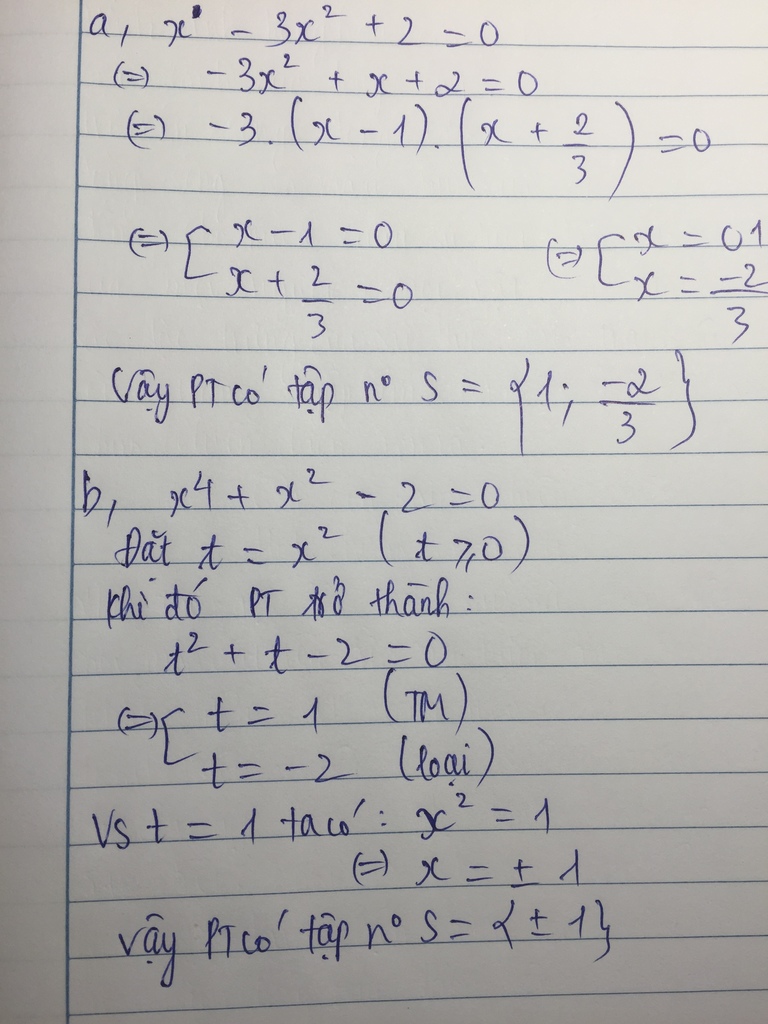 a, x - 3x² + 2 = 0
(=) -3x² + x + 2 = 0
(=) -3. (x - 1). (x + 2/3) = 0
(=) [ x - 1 = 0 (=) [ x = 01
x + 2/3 = 0 x = -2/3
Vậy PT có tập n° S = {1; -2/3}
b, x⁴ + x² - 2 = 0
Đặt t = x² (t ⩾ 0)
Khi đó PT trở thành:
t² + t - 2 = 0
(=) [ t = 1 (TM)
t = -2 (loại)
Vs t = 1 ta có: x² = 1
(=) x = ± 1
Vậy PT có tập n° S = {± 1}